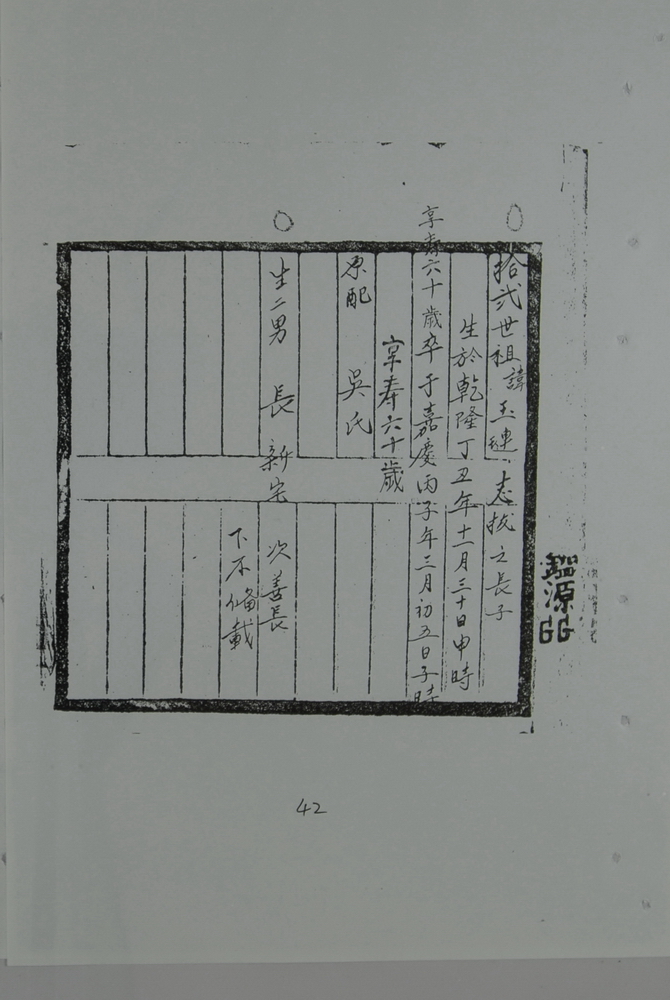 拾弍世祖諱玉璉志拔之長子
生於乾隆丁丑年十一月三十日申時
享壽六十歲卒于嘉慶丙子年三月初五日子時
享寿六十歲
原配 吳氏
生二男 長新宅 次善長
下不俻載
鑑源GG
42